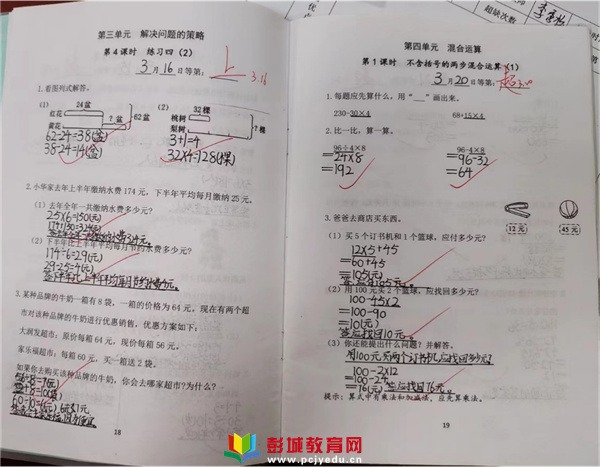 第三单元 解决问题的策略
第4课时 练习四（2）
3月16日等第：上 3.16
1.看图列式解答。
(1) 24盆
红花
黄花 ?盆 62盆
62-24=38(盆)
38-24=14(盆)
(2) 32棵
桃树
梨树 ?棵
3+1=4
32×4=128(棵)
2.小华家去年上半年缴纳水费174元，下半年平均每月缴纳25元。
(1) 去年全年一共缴纳水费多少元？
25×6=150(元)
174+150=324(元)
(2) 下半年比上半年平均每月节约水费多少元？
174÷6=29(元)
29-25=4(元)
3.某种品牌的牛奶一箱有8袋，一箱的价格为64元。现在有两个超
市对该种品牌的牛奶进行优惠销售，优惠方案如下：
大润发超市：原价每箱64元，现价每箱56元。
家乐福超市：每箱60元，买一箱送2袋。
如果你去购买该种品牌的牛奶，你会去哪家超市？为什么？
56÷8=7(元)
60÷10=6(元)
18
第四单元 混合运算
第1课时 不含括号的两步混合运算（1）
3月20日等第：
1.每题应先算什么，用“＿”画出来。
230-30×4 68+15×4
2.比一比，算一算。
96÷4×8
=24×8
=192
96-4×8
=96-32
=64
3.爸爸去商店买东西。
12元 45元
(1) 买5个订书机和1个篮球，应付多少元？
12×5+45
=60+45
=105(元)
答:应付105元。
(2) 用100元买2个篮球，应找回多少元？
100-45×2
=100-90
=10(元)
答:应找回10元。
(3) 你还能提出什么问题？并解答。
用100元买两个订书机,应找回多少元?
100-2×12
=100-24
=76(元) 答:应找回76元。
提示：算式中有乘法和加减法，应先算乘法。
19
彭城教育网
www.pcjyedu.cn